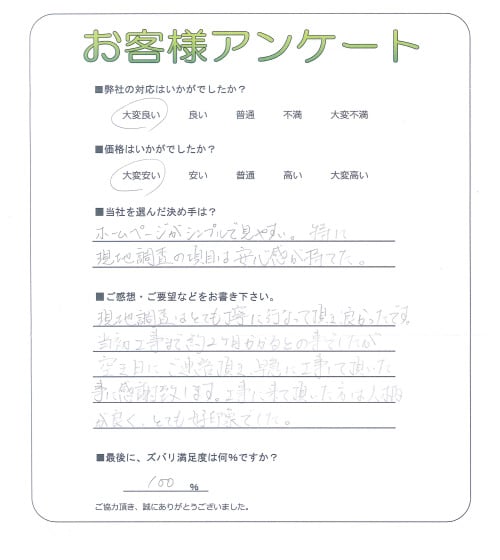 お客様アンケート
■弊社の対応はいかがでしたか？
大変良い 良い 普通 不満 大変不満
■価格はいかがでしたか？
大変安い 安い 普通 高い 大変高い
■当社を選んだ決め手は？
ホームページがシンプルで見やすい。特に
現地調査の項目は安心感が持てた。
■ご感想・ご要望などをお書き下さい。
現地調査はとても丁寧に行なって頂き良かったです。
当初工事まで約2ヶ月かかるとの事でしたが
空き日にご連絡頂き、早急に工事して頂いた
事に感謝致します。工事に来て頂いた方は人柄
が良く、とても好印象でした。
■最後に、ズバリ満足度は何%ですか？
100 %
ご協力頂き、誠にありがとうございました。